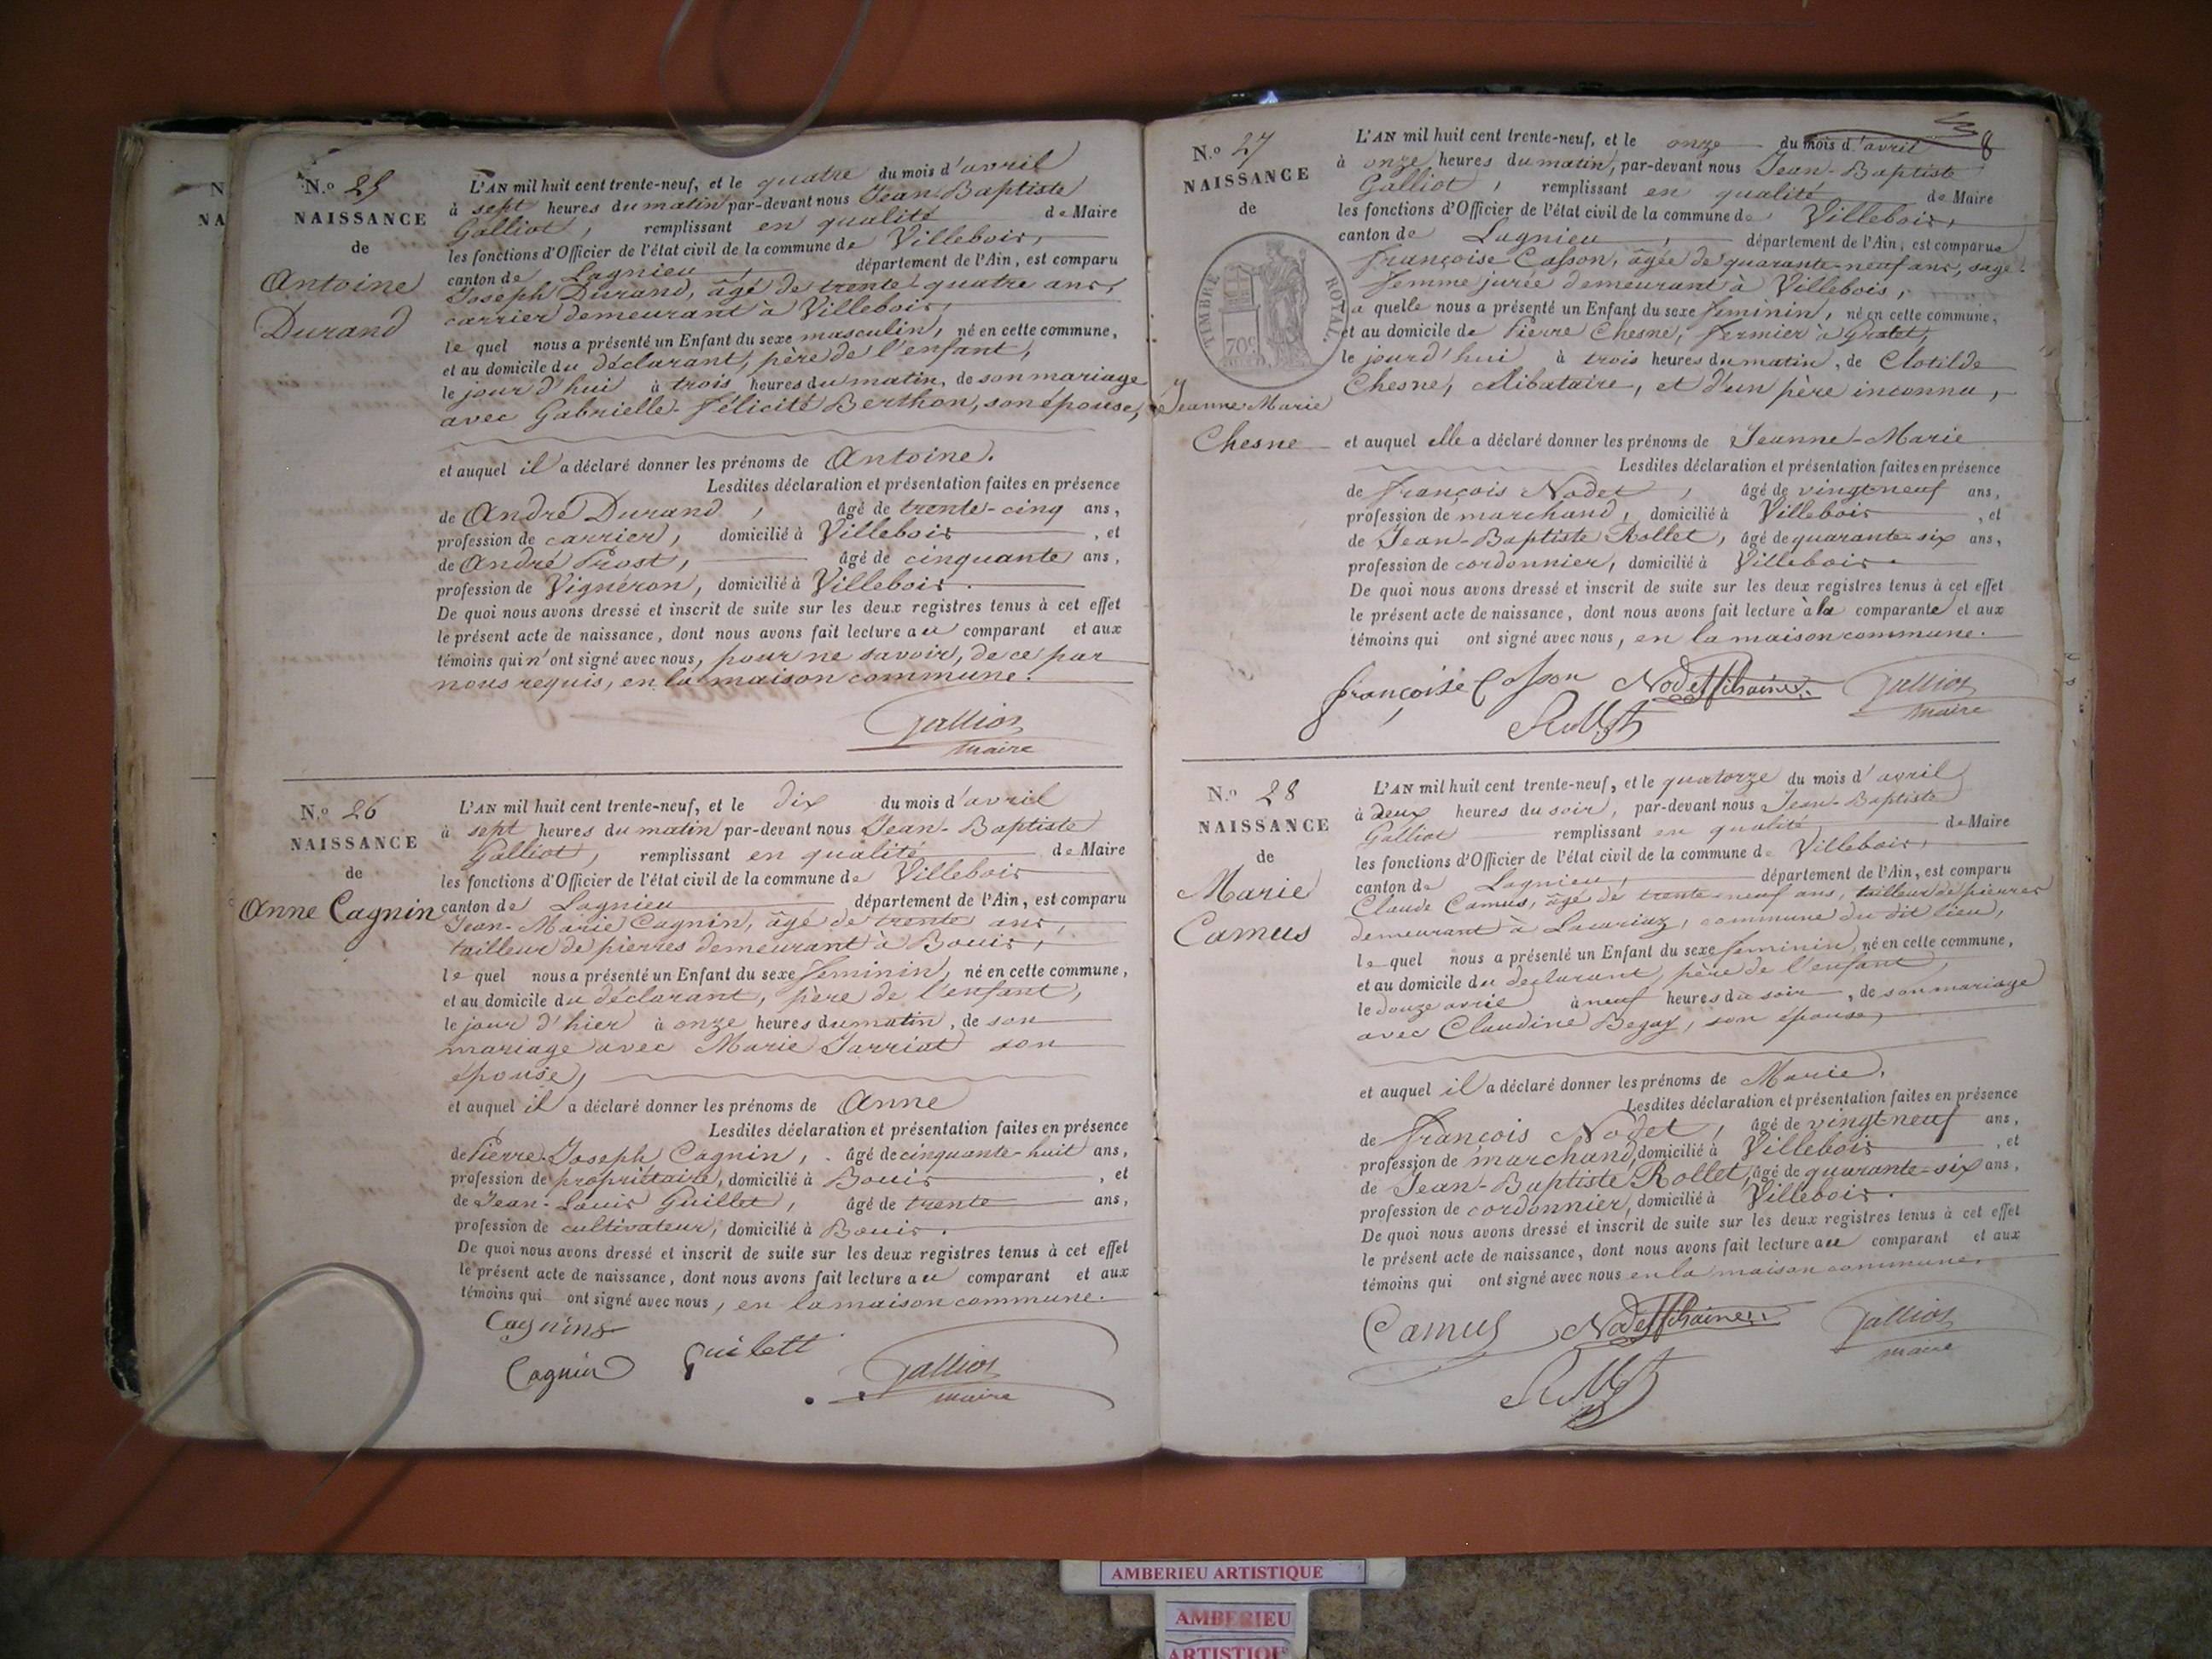 N.o 25
NAISSANCE
de
Antoine
Durand
L'AN mil huit cent trente-neuf, et le quatre du mois d'avril
à sept heures du matin par-devant nous Jean-Baptiste
Galliot, remplissant en qualité de Maire
les fonctions d'Officier de l'état civil de la commune de Villebois,
canton de Lagnieu, département de l'Ain, est comparu
Joseph Durand, âgé de trente-quatre ans,
carrier demeurant à Villebois,
le quel nous a présenté un Enfant du sexe masculin, né en cette commune,
et au domicile du déclarant, père de l'enfant,
le jour d'hui à trois heures du matin, de son mariage
avec Gabrielle-Félicité Berthon, son épouse,
et auquel il a déclaré donner les prénoms de Antoine.
Lesdites déclaration et présentation faites en présence
de André Durand, âgé de trente-cinq ans,
profession de carrier, domicilié à Villebois, et
de André Prost, âgé de cinquante ans,
profession de Vigneron, domicilié à Villebois.
De quoi nous avons dressé et inscrit de suite sur les deux registres tenus à cet effet
le présent acte de naissance, dont nous avons fait lecture au comparant et aux
témoins qui n'ont signé avec nous, pour ne savoir, de ce par
nous requis, en la maison commune.
Galliot
maire
N.o 26
NAISSANCE
de
Anne Cagnin
L'AN mil huit cent trente-neuf, et le dix du mois d'avril
à sept heures du matin par-devant nous Jean-Baptiste
Galliot, remplissant en qualité de Maire
les fonctions d'Officier de l'état civil de la commune de Villebois
canton de Lagnieu département de l'Ain, est comparu
Jean-Marie Cagnin, âgé de trente ans,
tailleur de pierres demeurant à Bouis,
le quel nous a présenté un Enfant du sexe féminin, né en cette commune,
et au domicile du déclarant, père de l'enfant,
le jour d'hier à onze heures du matin, de son
mariage avec Marie Jarriat son
épouse,
et auquel il a déclaré donner les prénoms de Anne
Lesdites déclaration et présentation faites en présence
de Pierre-Joseph Cagnin, âgé de cinquante-huit ans,
profession de propriétaire, domicilié à Bouis, et
de Jean-Louis Guillet, âgé de trente ans,
profession de cultivateur, domicilié à Bouis.
De quoi nous avons dressé et inscrit de suite sur les deux registres tenus à cet effet
le présent acte de naissance, dont nous avons fait lecture au comparant et aux
témoins qui ont signé avec nous, en la maison commune.
Cagnin
Cagnin Guilett Galliot
maire
N.o 27
NAISSANCE
de
TIMBRE ROYAL
70c
Jeanne-Marie
Chesne
8
L'AN mil huit cent trente-neuf, et le onze du mois d'avril
à onze heures du matin, par-devant nous Jean-Baptiste
Galliot, remplissant en qualité de Maire
les fonctions d'Officier de l'état civil de la commune de Villebois,
canton de Lagnieu, département de l'Ain, est comparue
Françoise Casson, âgée de quarante-neuf ans, sage-
femme jurée demeurant à Villebois,
la quelle nous a présenté un Enfant du sexe féminin, né en cette commune,
et au domicile de Pierre Chesne, fermier à
le jourd'hui à trois heures du matin, de Clotilde
Chesne, célibataire, et d'un père inconnu,
et auquel elle a déclaré donner les prénoms de Jeanne-Marie
Lesdites déclaration et présentation faites en présence
de François Nodet, âgé de vingt-neuf ans,
profession de marchand, domicilié à Villebois, et
de Jean-Baptiste Rollet, âgé de quarante-six ans,
profession de cordonnier, domicilié à Villebois.
De quoi nous avons dressé et inscrit de suite sur les deux registres tenus à cet effet
le présent acte de naissance, dont nous avons fait lecture à la comparante et aux
témoins qui ont signé avec nous, en la maison commune.
françoise Casson Nodet Galliot
Rollet maire
N.o 28
NAISSANCE
de
Marie
Camus
L'AN mil huit cent trente-neuf, et le quatorze du mois d'avril
à deux heures du soir, par-devant nous Jean-Baptiste
Galliot remplissant en qualité de Maire
les fonctions d'Officier de l'état civil de la commune de Villebois,
canton de Lagnieu, département de l'Ain, est comparu
Claude Camus, âgé de trente-neuf ans, tailleur de pierres
demeurant à commune du dit lieu,
le quel nous a présenté un Enfant du sexe féminin, né en cette commune,
et au domicile du déclarant, père de l'enfant,
le douze avril à neuf heures du soir, de son mariage
avec Claudine Begay, son épouse,
et auquel il a déclaré donner les prénoms de Marie.
Lesdites déclaration et présentation faites en présence
de François Nodet, âgé de vingt-neuf ans,
profession de marchand, domicilié à Villebois, et
de Jean-Baptiste Rollet, âgé de quarante-six ans,
profession de cordonnier, domicilié à Villebois.
De quoi nous avons dressé et inscrit de suite sur les deux registres tenus à cet effet
le présent acte de naissance, dont nous avons fait lecture au comparant et aux
témoins qui ont signé avec nous en la maison commune.
Camus Nodet Galliot
Rollet maire
N
NA
AMBERIEU ARTISTIQUE
AMBERIEU
ARTISTIQUE